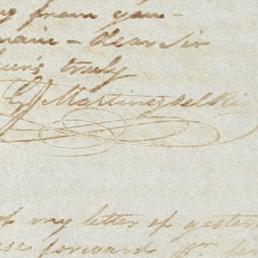 from you -
main - dear Sir
truly
Martinez del Rio
of my letter of yester
forward